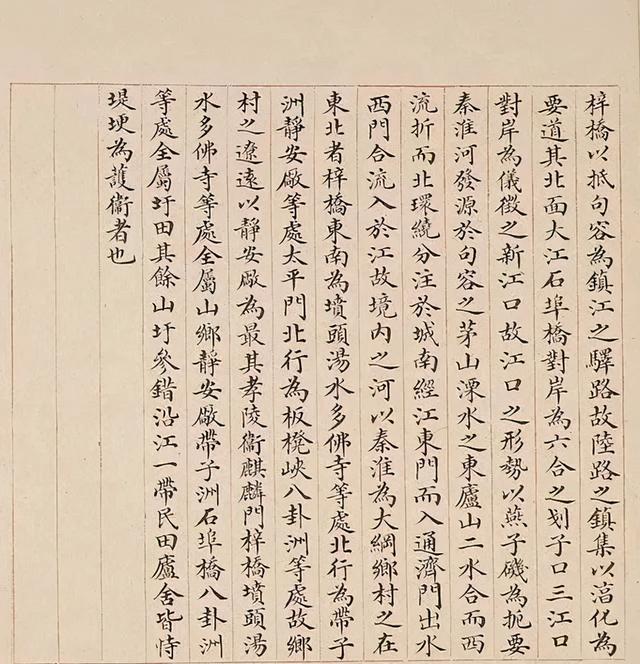 梓橋以抵句容為鎮江之驛路故陸路之鎮集以湻化為
要道其北面大江石埠橋對岸為六合之划子口三江口
對岸為儀徵之新江口故江口之形勢以燕子磯為扼要
秦淮河發源於句容之茅山溧水之東廬山二水合而西
流折而北環繞分注於城南經江東門而入通濟門出水
西門合流入於江故境內之河以秦淮為大綱鄉村之在
東北者梓橋東南為墳頭湯水多佛寺等處北行為帶子
洲靜安厰等處太平門北行為板橙峽八卦洲等處故鄉
村之遼遠以靜安厰為最其孝陵衞麒麟門梓橋墳頭湯
水多佛寺等處全屬山鄉靜安厰帶子洲石埠橋八卦洲
等處全屬圩田其餘山圩參錯沿江一帶民田廬舍皆恃
堤埂為護衞者也